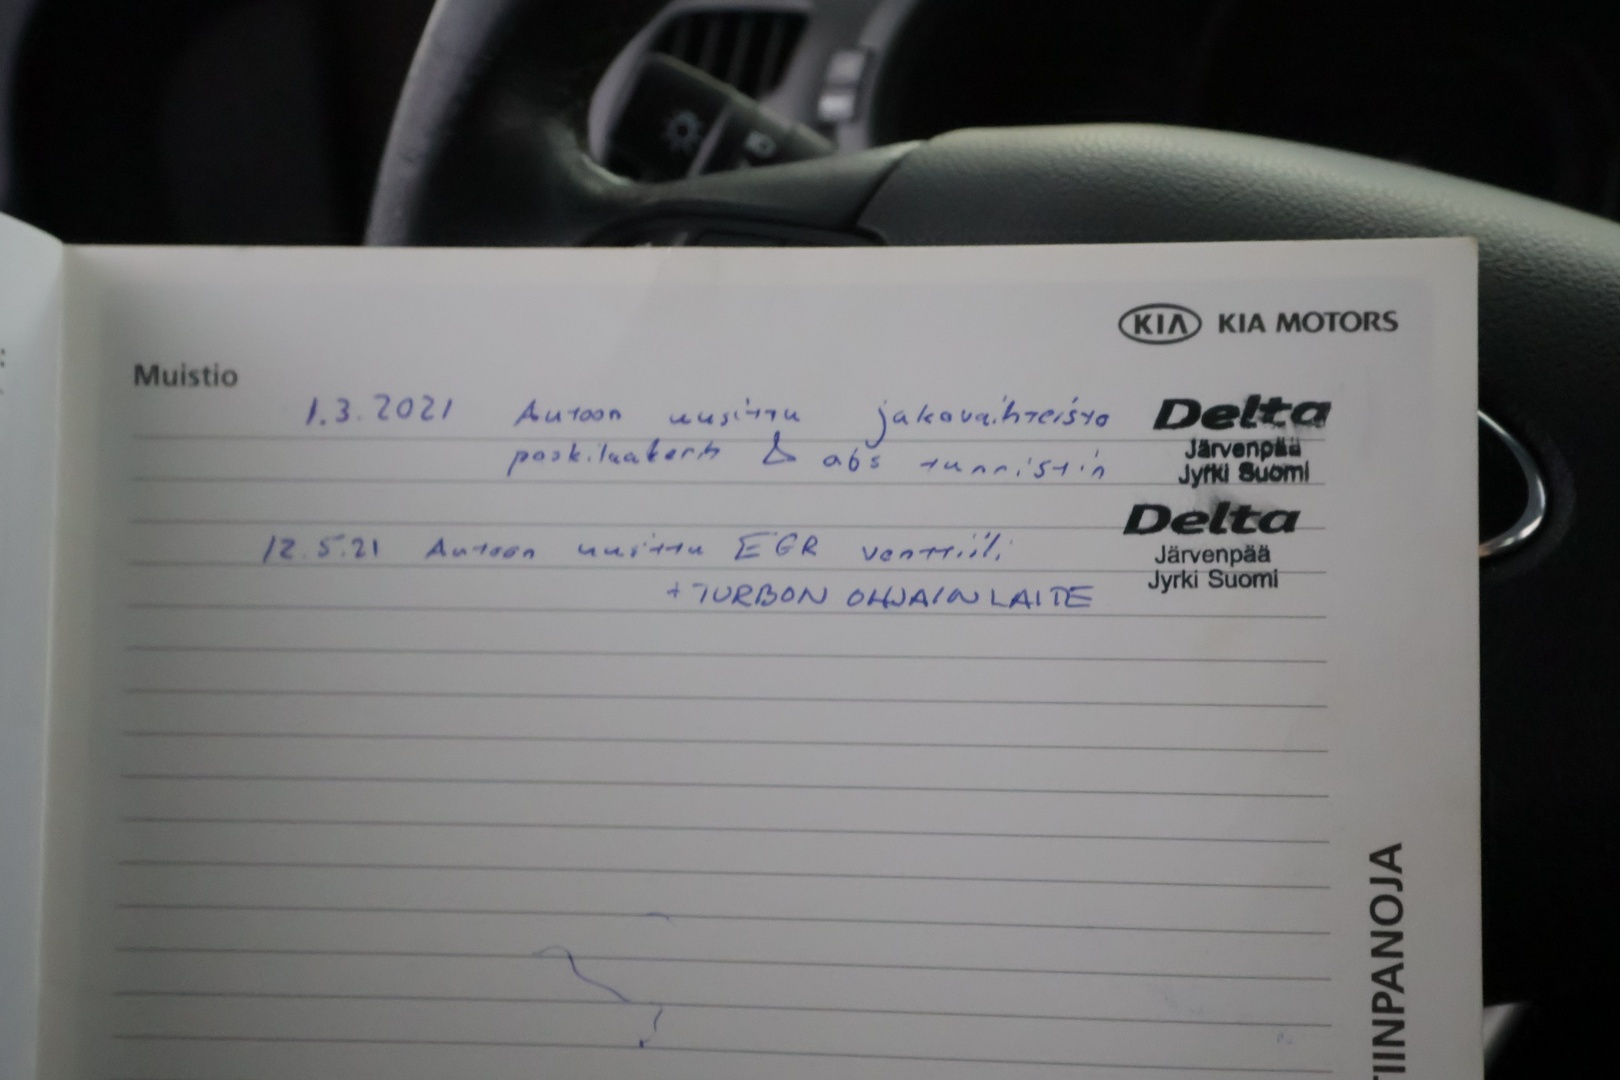 KIA KIA MOTORS
Muistio
1.3.2021 Autoon uusittu jakovaihteisto Delta
Järvenpää
poskilaakerit & abs tunnistin Jyrki Suomi
Delta
12.5.21 Autoon uusittu EGR venttiili Järvenpää
+ TURBON OHJAINLAITE Jyrki Suomi
TIINPANOJA